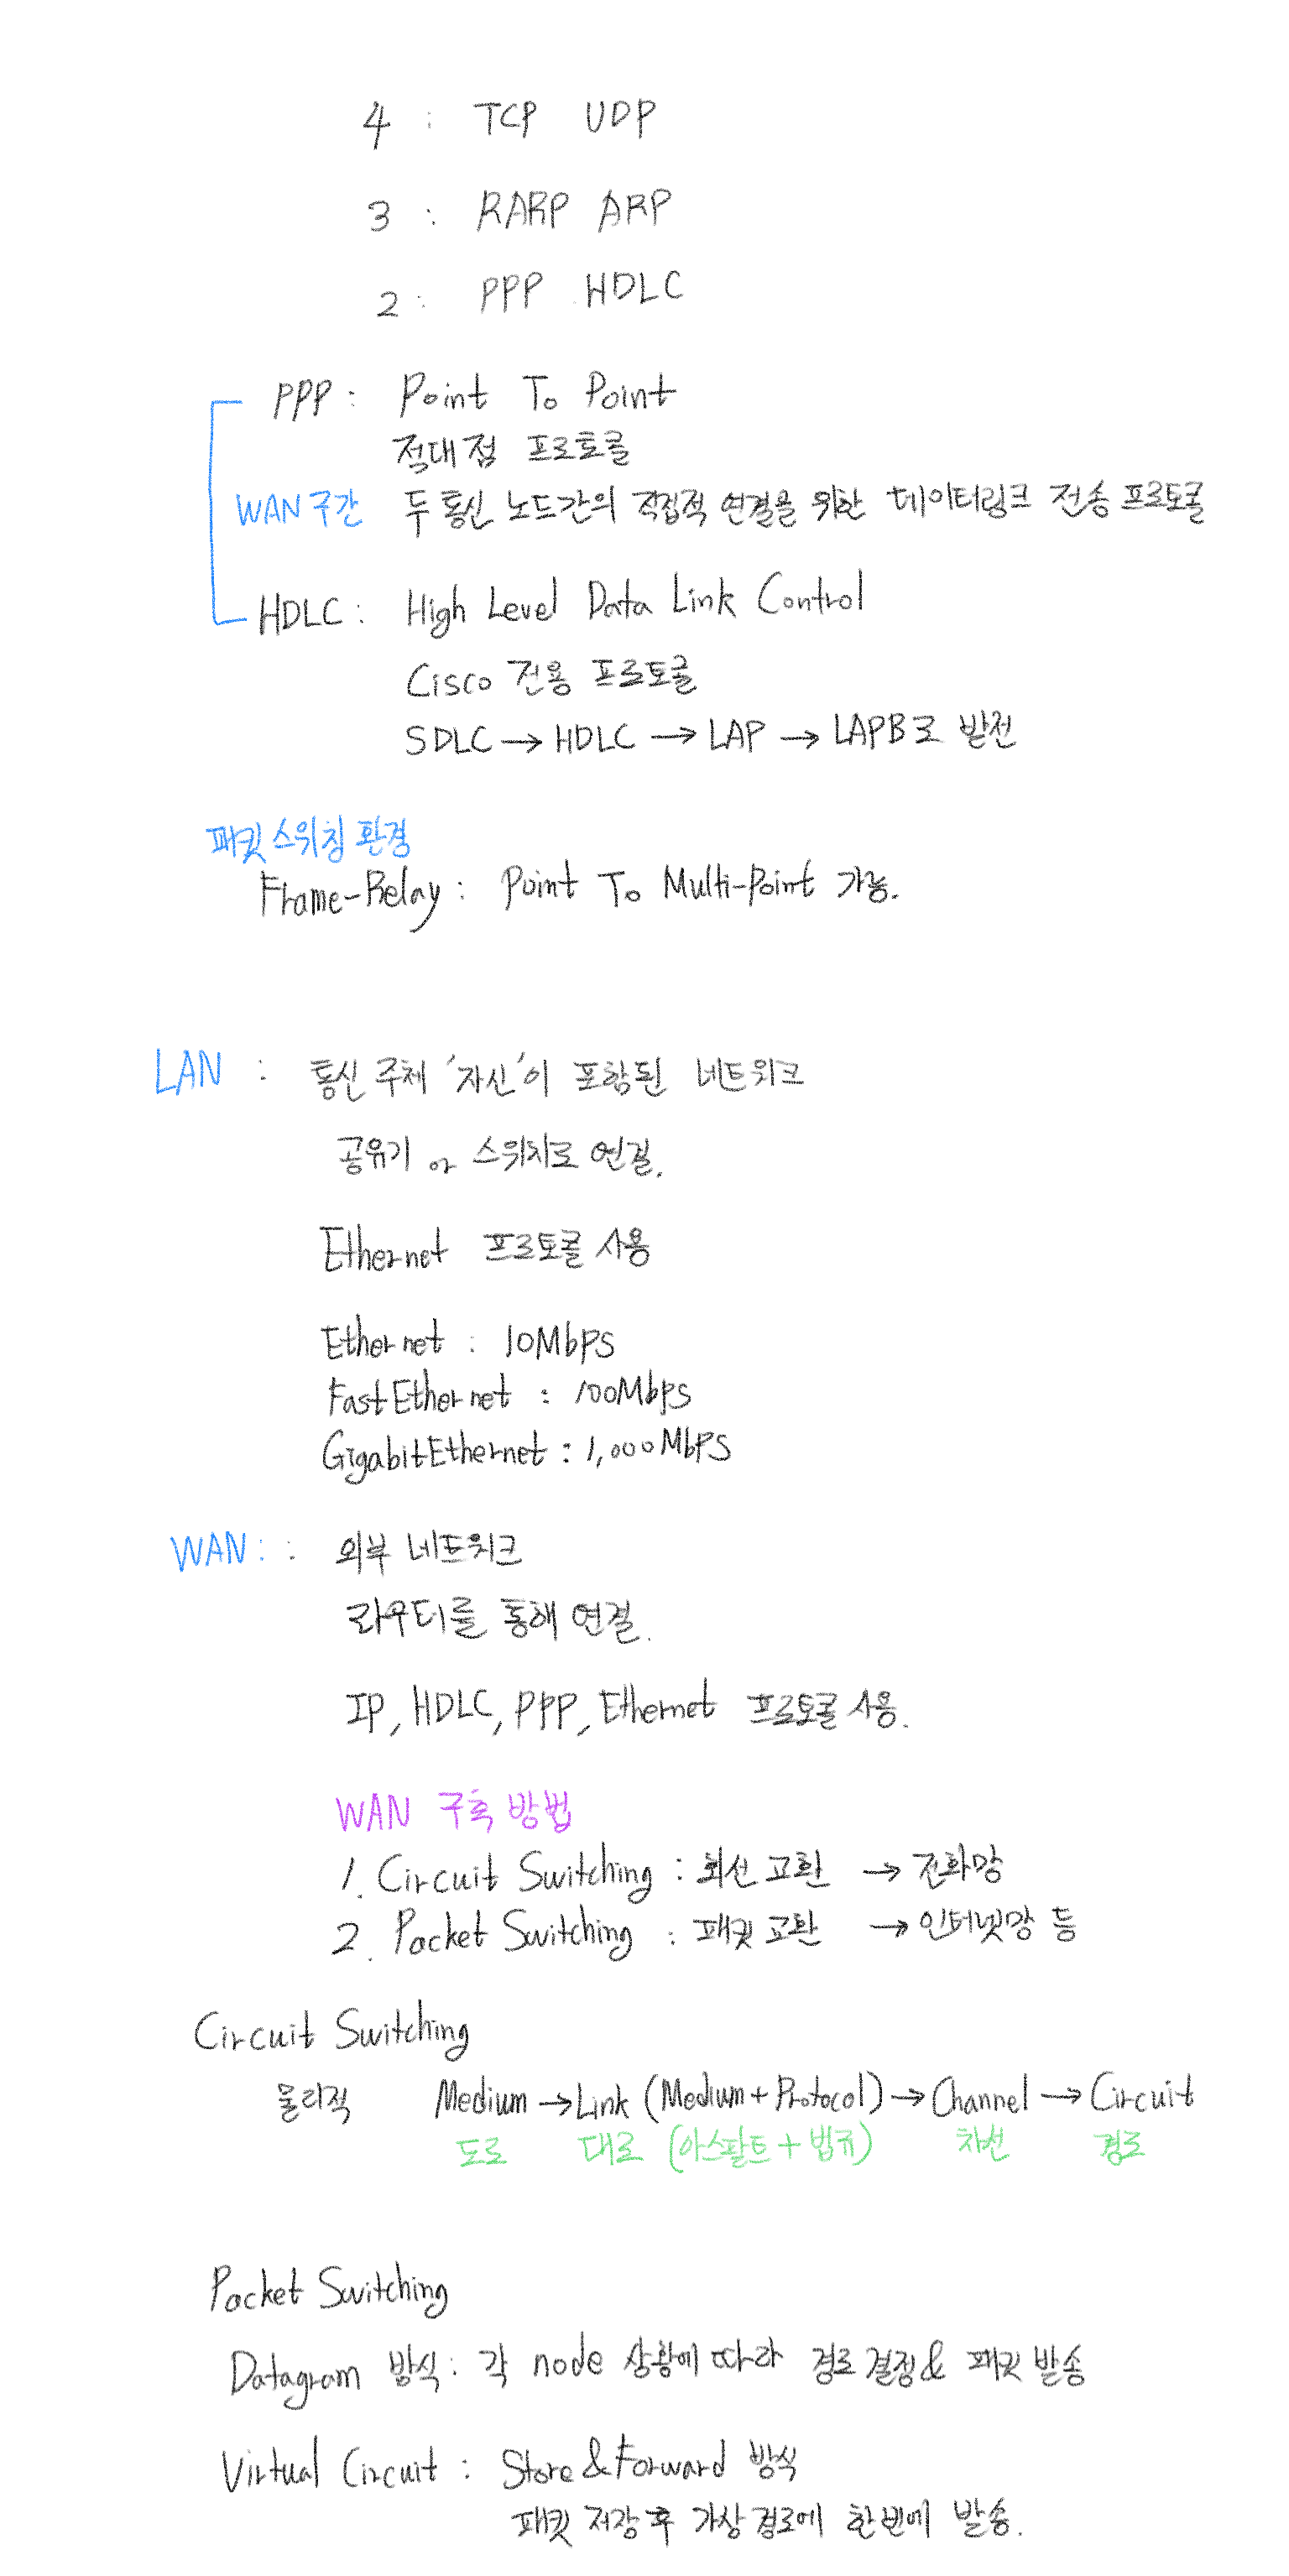 4 : TCP UDP
3 : RARP ARP
2 : PPP HDLC
PPP : Point To Point
적대점 프로토콜
WAN 구간 두 통신 노드간의 직접적 연결을 위한 데이터링크 전송 프로토콜
HDLC : High Level Data Link Control
Cisco 전용 프로토콜
SDLC → HDLC → LAP → LAPB로 발전
패킷 스위칭 환경
Frame-Relay : Point To Multi-Point 가능.
LAN : 통신 주체 '자신'이 포함된 네트워크
공유기 or 스위치로 연결.
Ethernet 프로토콜 사용
Ethernet : 10Mbps
FastEthernet : 100Mbps
GigabitEthernet : 1,000Mbps
WAN : : 외부 네트워크
라우터를 통해 연결.
IP, HDLC, PPP, Ethernet 프로토콜 사용.
WAN 구축 방법
1. Circuit Switching : 회선 교환 → 전화망
2. Packet Switching : 패킷 교환 → 인터넷망 등
Circuit Switching
물리적 Medium → Link (Medium + Protocol) → Channel → Circuit
도로 대로 (아스팔트 + 법규) 차선 경로
Packet Switching
Datagram 방식 : 각 node 상황에 따라 경로 결정 & 패킷 발송
Virtual Circuit : Store & Forward 방식
패킷 저장 후 가상 경로에 한번에 발송.